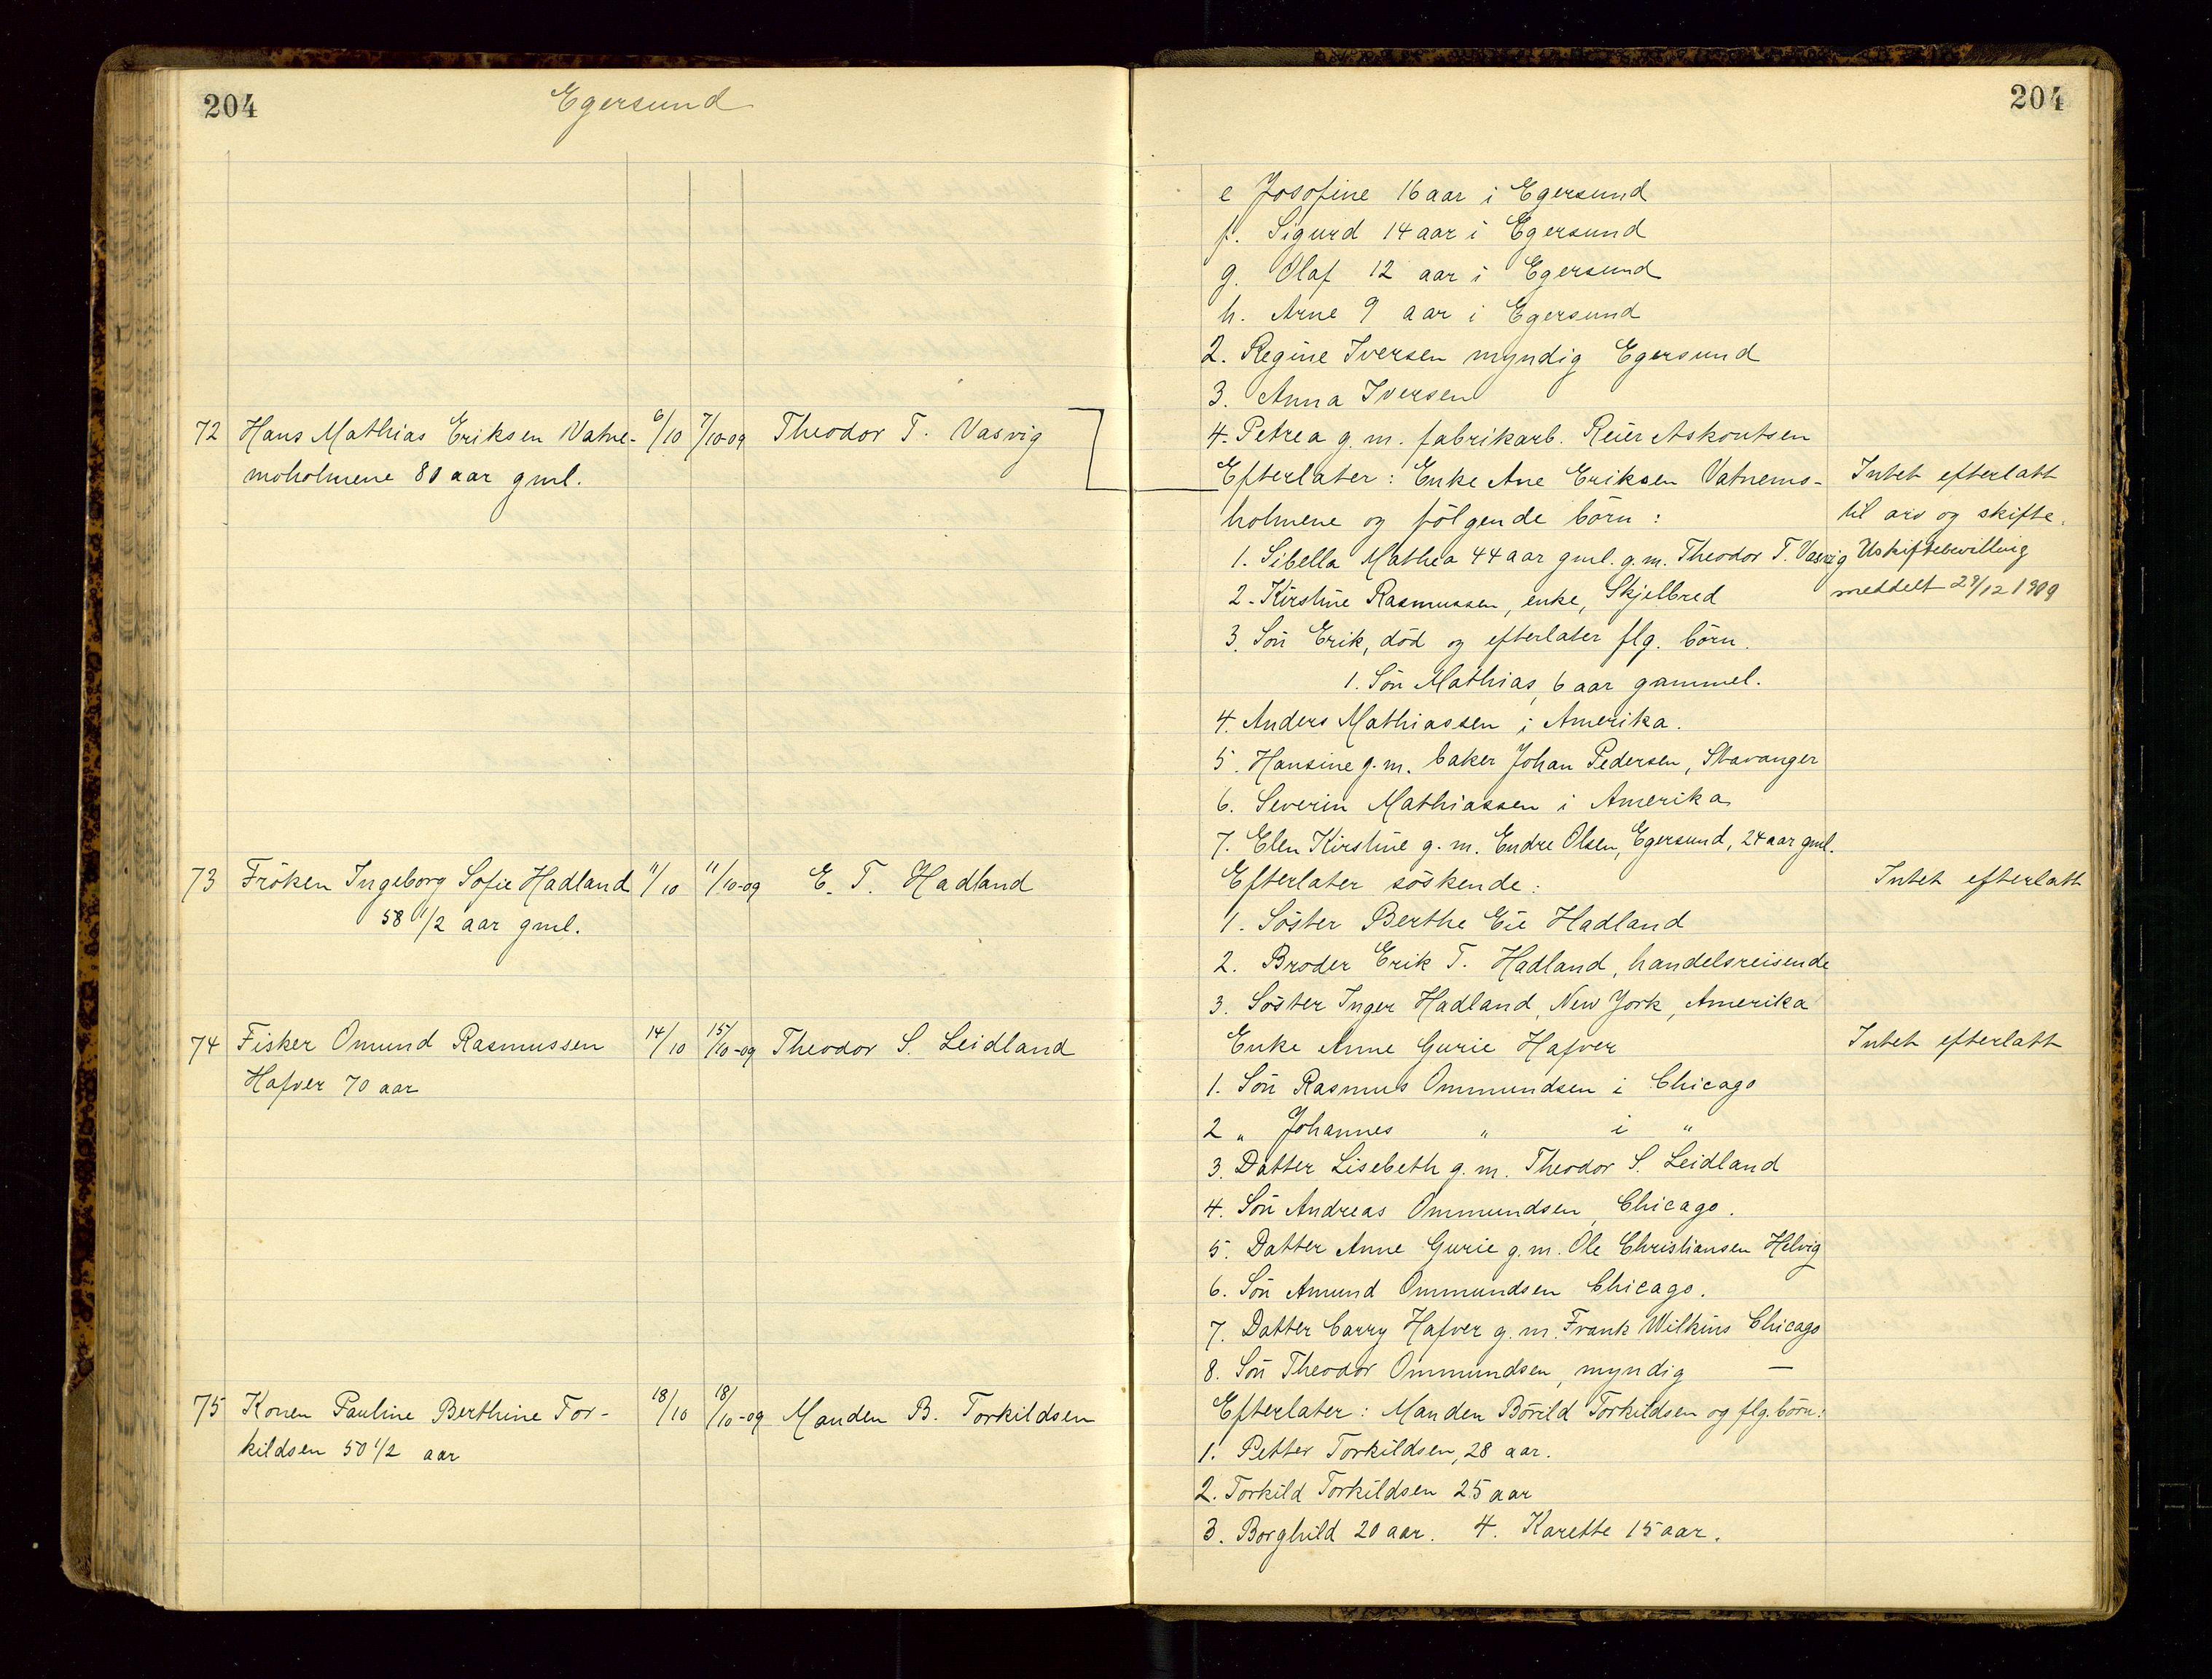 204
Egersund
72 Hans Mathias Eriksen Vatne- 6/10 7/10-09 Theodor T. Vasvig
moholmene 80 aar gml.
73 Fröken Ingeborg Sofie Hadland 11/10 11/10-09 E. T. Hadland
58 1/2 aar gml.
74 Fisker Omund Rasmussen 14/10 15/10-09 Theodor S. Leidland
Hafver 70 aar
75 Konen Pauline Berthine Tor- 18/10 18/10-09 Manden B. Torkildsen
kildsen 50 1/2 aar
204
e Josofine 16 aar i Egersund
f. Sigurd 14 aar i Egersund
g. Olaf 12 aar i Egersund
h. Arne 9 aar i Egersund
2. Regine Iversen myndig Egersund
3. Anna Iversen
4. Petrea g. m. fabrikarb. Reier Askoutsen
Efterlater: Enke Ane Eriksen Vatnemo- Intet efterlatt
holmene og fölgende börn: til arv og skifte.
1. Sibella Mathea 44 aar gml. g.m. Theodor T. Vasvig Uskiftebevilling
2. Kirstine Rasmussen, enke, Skjelbred meddelt 29/12 1909
3. Sön Erik, död og efterlater flg. börn.
1. Sön Mathias, 6 aar gammel.
4. Anders Mathiassen i Amerika.
5. Hansine g. m. baker Johan Pedersen, Stavanger
6. Severin Mathiassen i Amerika
7. Elen Kirstine g. m. Endre Olsen, Egersund, 24 aar gml.
Efterlater söskende: Intet efterlatt
1. Söster Berthe Eie Hadland
2. Broder Erik T. Hadland, handelsreisende
3. Söster Inger Hadland, New York, Amerika
Enke Anne Gurie Hafver Intet efterlatt
1. Sön Rasmus Ommundsen i Chicago
2 " Johannes " i "
3. Datter Lisebeth g. m. Theodor S. Leidland
4. Sön Andreas Ommundsen, Chicago.
5. Datter Anne Gurie g. m. Ole Christiansen Helvig
6. Sön Amund Ommundsen Chicago.
7. Datter Carry Hafver g. m. Frank Wilkins Chicago
8. Sön Theodor Ommundsen, myndig —
Efterlater: Manden Börild Torkildsen og flg. börn:
1. Petter Torkildsen, 28 aar.
2. Torkild Torkildsen 25 aar
3. Borghild 20 aar. 4. Karette 15 aar.